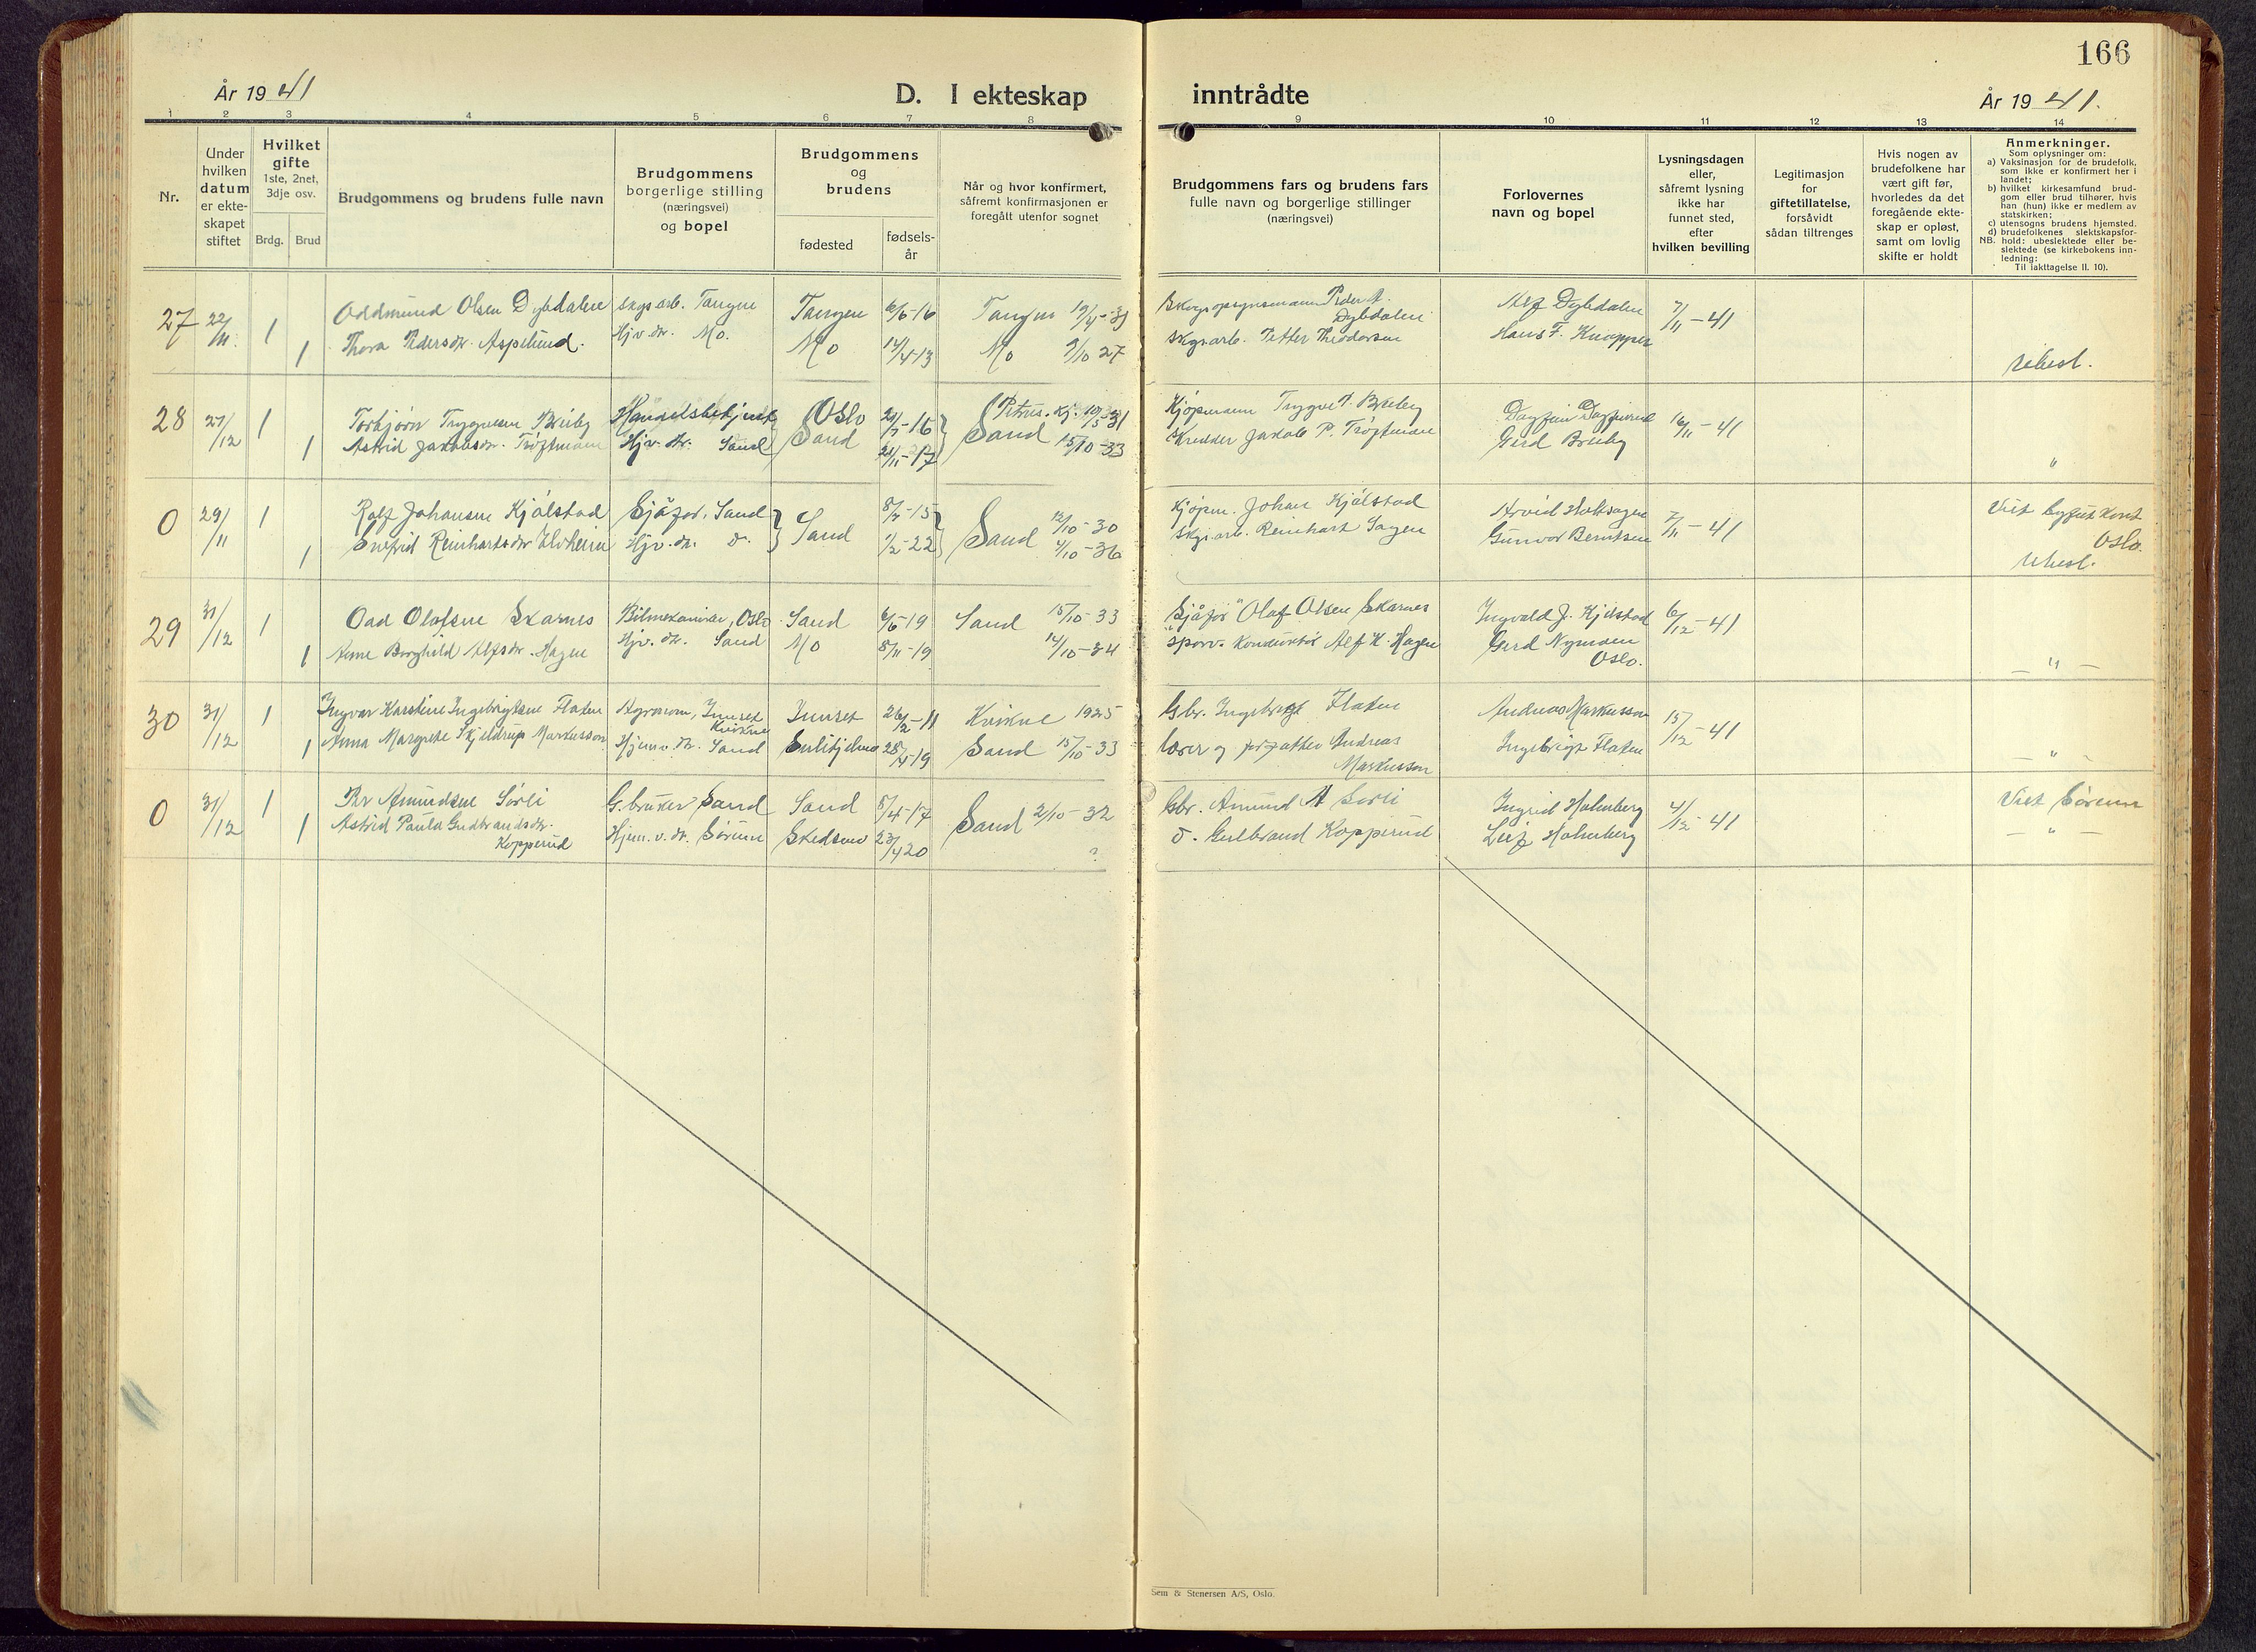 166
År 19 41
D. I ekteskap inntrådte
År 19 41.
1 2 3 4 5 6 7 8 9 10 11 12 13 14
Nr.
Under
hvilken
datum
er ekte-
skapet
stiftet
Hvilket
gifte
1ste, 2net,
3dje osv.
Brdg. Brud
Brudgommens og brudens fulle navn
Brudgommens
borgerlige stilling
(næringsvei)
og bopel
Brudgommens
og
brudens
fødested
fødsels-
år
Når og hvor konfirmert,
såfremt konfirmasjonen er
foregått utenfor sognet
Brudgommens fars og brudens fars
fulle navn og borgerlige stillinger
(næringsvei)
Forlovernes
navn og bopel
Lysningsdagen
eller,
såfremt lysning
ikke har
funnet sted,
efter
hvilken bevilling
Legitimasjon
for
giftetillatelse,
forsåvidt
sådan tiltrenges
Hvis nogen av
brudefolkene har
vært gift før,
hvorledes da det
foregående ekte-
skap er opløst,
samt om lovlig
skifte er holdt
Anmerkninger.
Som oplysninger om:
a) Vaksinasjon for de brudefolk,
som ikke er konfirmert her i
landet;
b) hvilket kirkesamfund brud-
gom eller brud tilhører, hvis
han (hun) ikke er medlem av
statskirken;
c) utensogns brudens hjemsted.
d) brudefolkenes slektskapsfor-
NB. hold: ubeslektede eller be-
slektede (se kirkebokens inn-
ledning:
Til iakttagelse II. 10).
27 22/11. 1 Oddmund Olsen Dybdalen skogsarb. Tangen Tangen 6/6-16 Tangen 19/4-31 Skogopsynsmann Peder A. Dybdalen Alf Dybdalen 7/11-41
1 Thora Pedersdr. Aspelund. Hjv. dr. Mo. Mo 14/4-13 Mo 9/10 27 skgsarb. Petter Theodorsen Hans F. Knapper ubesl.
28 27/12 1 Torbjørn Tryggvesen Bråby Handelsbetjent Oslo 16 Petrus. kj. 10/5-31 Kjøpmann Tryggve Dagfinn 16/11-41
1 Astrid Jakobsdr. Trøftmoen Hjv. dr. Sand Sand 17 Sand 15/10-33 Skredder Jakob P. Trøftmoen Gerd "
0 29/11 1 Rolf Johansen Kjølstad Sjåfør. Sand Sand 8/7-15 Sand 12/10-30 Kjøpm. Johan Kjølstad Arvid 7/11-41 Viet Oslo.
1 Reinhartsdr. Hjv. dr. do. 1/2-22 4/10-36 skgsarb. Reinhart Sagen Gunvor Berntsen Ubesl.
29 31/12 1 Odd Olafsen Skarnes Bilmekaniker, Oslo Sand 6/6-19 Sand 15/10-33 Sjåfør Olaf Olsen Skarnes Ingvald J. Kjølstad 6/12-41
1 Anne Borghild Alfsdr. Hagen Hjv. dr. Sand Mo 8/11-19 14/10-34 sporv. konduktør Alf K. Hagen Gerd Nymoen Oslo. - " -
30 31/12 1 Ingvar Karstein Ingebrigtsen Floten Agronom, Innset Kvikne Innset 26/2-11 Kvikne 1925 Gbr. Ingebrigt Floten Andreas Markusson 15/12-41
1 Anna Margrete Skjeldrup Markusson Hjem.v. dr. Sand Sulitjelma 28/4-19 Sand 15/10-33 lærer og forfatter Andreas Markusson Ingebrigt Floten - " -
0 31/12 1 Per Amundsen Sørli G. bruker Sand Sand 8/4-17 Sand 2/10-32 Gbr. Amund A Sørli Ingrid Holmberg 4/12-41 Viet Sørum
1 Astrid Paula Gudbrandsdr. Kopperud Hjem. v. dr. Sørum Skedsmo 23/4 20 ? do. Gulbrand Kopperud Leif Holmberg - " -
Sem & Stenersen A/S, Oslo.